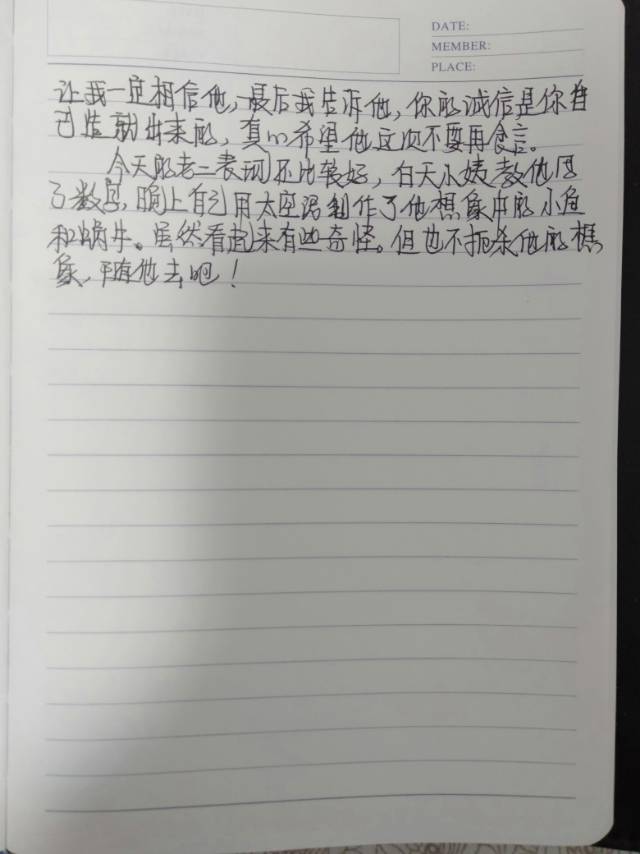 DATE:
MEMBER:
PLACE:
让我一定相信他,最后我告诉他,你的诚信是你自
己造就出来的,真心希望他这次不要再食言。
今天的老二表现还比较好,白天小姨教他写
了数字,晚上自己用太空泥制作了他想象中的小鱼
和蜗牛。虽然看起来有些奇怪。但也不扼杀他的想
象,随他去吧!